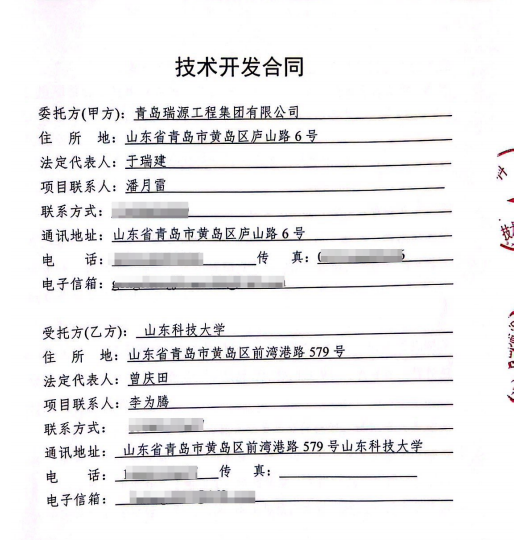 技术开发合同
委托方(甲方)：青岛瑞源工程集团有限公司
住 所 地：山东省青岛市黄岛区庐山路 6 号
法定代表人：于瑞建
项目联系人：潘月雷
联系方式：
通讯地址：山东省青岛市黄岛区庐山路 6 号
电 话： 传 真：
电子信箱：
受托方(乙方)：山东科技大学
住 所 地：山东省青岛市黄岛区前湾港路 579 号
法定代表人：曾庆田
项目联系人：李为腾
联系方式：
通讯地址：山东省青岛市黄岛区前湾港路 579 号山东科技大学
电 话： 传 真：
电子信箱：